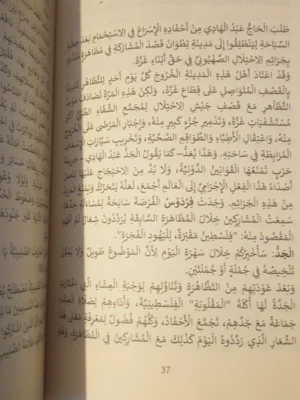 طَلَبَ الْحَاجُّ عَبْدُ الْهَادِي مِنْ أَحْفَادِهِ الْإِسْرَاعَ فِي الِاسْتِحْمَامِ بَعْدَ
السِّبَاحَةِ لِيَنْطَلِقُوا إِلَى مَدِينَةِ تِطْوَانَ قَصْدَ الْمُشَارَكَةِ فِي مُظَاهَرَةٍ
بِجَرَائِمِ الِاحْتِلَالِ الصُّهْيُونِيِّ فِي حَقِّ أَبْنَاءِ غَزَّةَ.
وَقَدْ اعْتَادَ أَهْلُ هَذِهِ الْمَدِينَةِ الْخُرُوجَ كُلَّ يَوْمِ أَحَدٍ لِلتَّظَاهُرِ
بِالْقَصْفِ الْمُتَوَاصِلِ عَلَى قِطَاعِ غَزَّةَ، وَلَكِنَّ هَذِهِ الْمَرَّةَ تَصَادَفَ
التَّظَاهُرُ مَعَ قَصْفِ جَيْشِ الِاحْتِلَالِ لِمُجَمَّعِ الشِّفَاءِ الطِّبِّيِّ
مُسْتَشْفَيَاتِ غَزَّةَ، وَتَدْمِيرِ جُزْءٍ كَبِيرٍ مِنْهُ، وَإِجْبَارِ الْمَرْضَى عَلَى
مِنْهُ، وَاعْتِقَالِ الْأَطِبَّاءِ وَالطَّوَاقِمِ الصِّحِّيَّةِ، وَتَخْرِيبِ سَيَّارَاتِ الْإِسْعَافِ
الْمُرَابِطَةِ فِي سَاحَتِهِ. وَهَذَا يُعَدُّ – كَمَا يَقُولُ الْجَدُّ عَبْدُ الْهَادِي –
حَرْبٍ تَمْنَعُهَا الْقَوَانِينُ الدَّوْلِيَّةُ، وَلَا بُدَّ مِنَ الِاحْتِجَاجِ عَلَيْهَا
أَصْدَاءُ هَذَا الْفِعْلِ الْإِجْرَامِيِّ إِلَى الْعَالَمِ أَجْمَعَ، لَعَلَّهُ يَتَحَرَّكُ
مِنْ هَذِهِ الْجَرَائِمِ. وَجَدَتْ فِرْدَوْسُ الْفُرْصَةَ سَانِحَةً لِمُسَاءَلَةِ
سَمِعْتُ الْمُشَارِكِينَ خِلَالَ الْمُظَاهَرَةِ السَّابِقَةِ يُرَدِّدُونَ شِعَارًا لَمْ
الْمَقْصُودَ مِنْهُ: "فِلَسْطِينُ مَقْبَرَةٌ، لِلْيَهُودِ الْفَجَرَةِ".
الْجَدُّ: سَأُخْبِرُكُمْ خِلَالَ سَهْرَةِ الْيَوْمِ لِأَنَّ الْمَوْضُوعَ طَوِيلٌ وَلَا يُمْكِنُ
تَلْخِيصُهُ فِي جُمْلَةٍ أَوْ جُمْلَتَيْنِ.
وَبَعْدَ عَوْدَتِهِمْ مِنَ التَّظَاهُرَةِ وَتَنَاوُلِهِمْ لِوَجْبَةِ الْعِشَاءِ الَّتِي
الْجَدَّةُ لَهَا أَكْلَةَ "الْمَقْلُوبَةِ" الْفِلَسْطِينِيَّةَ، وَأَدَاءِهِمْ لِصَلَاةِ
جَمَاعَةً مَعَ جَدِّهِمْ، تَجَمَّعَ الْأَحْفَادُ، وَكُلُّهُمْ فُضُولٌ لِمَعْرِفَةِ
الشِّعَارِ الَّذِي رَدَّدُوهُ الْيَوْمَ كَذَلِكَ مَعَ الْمُشَارِكِينَ فِي
37